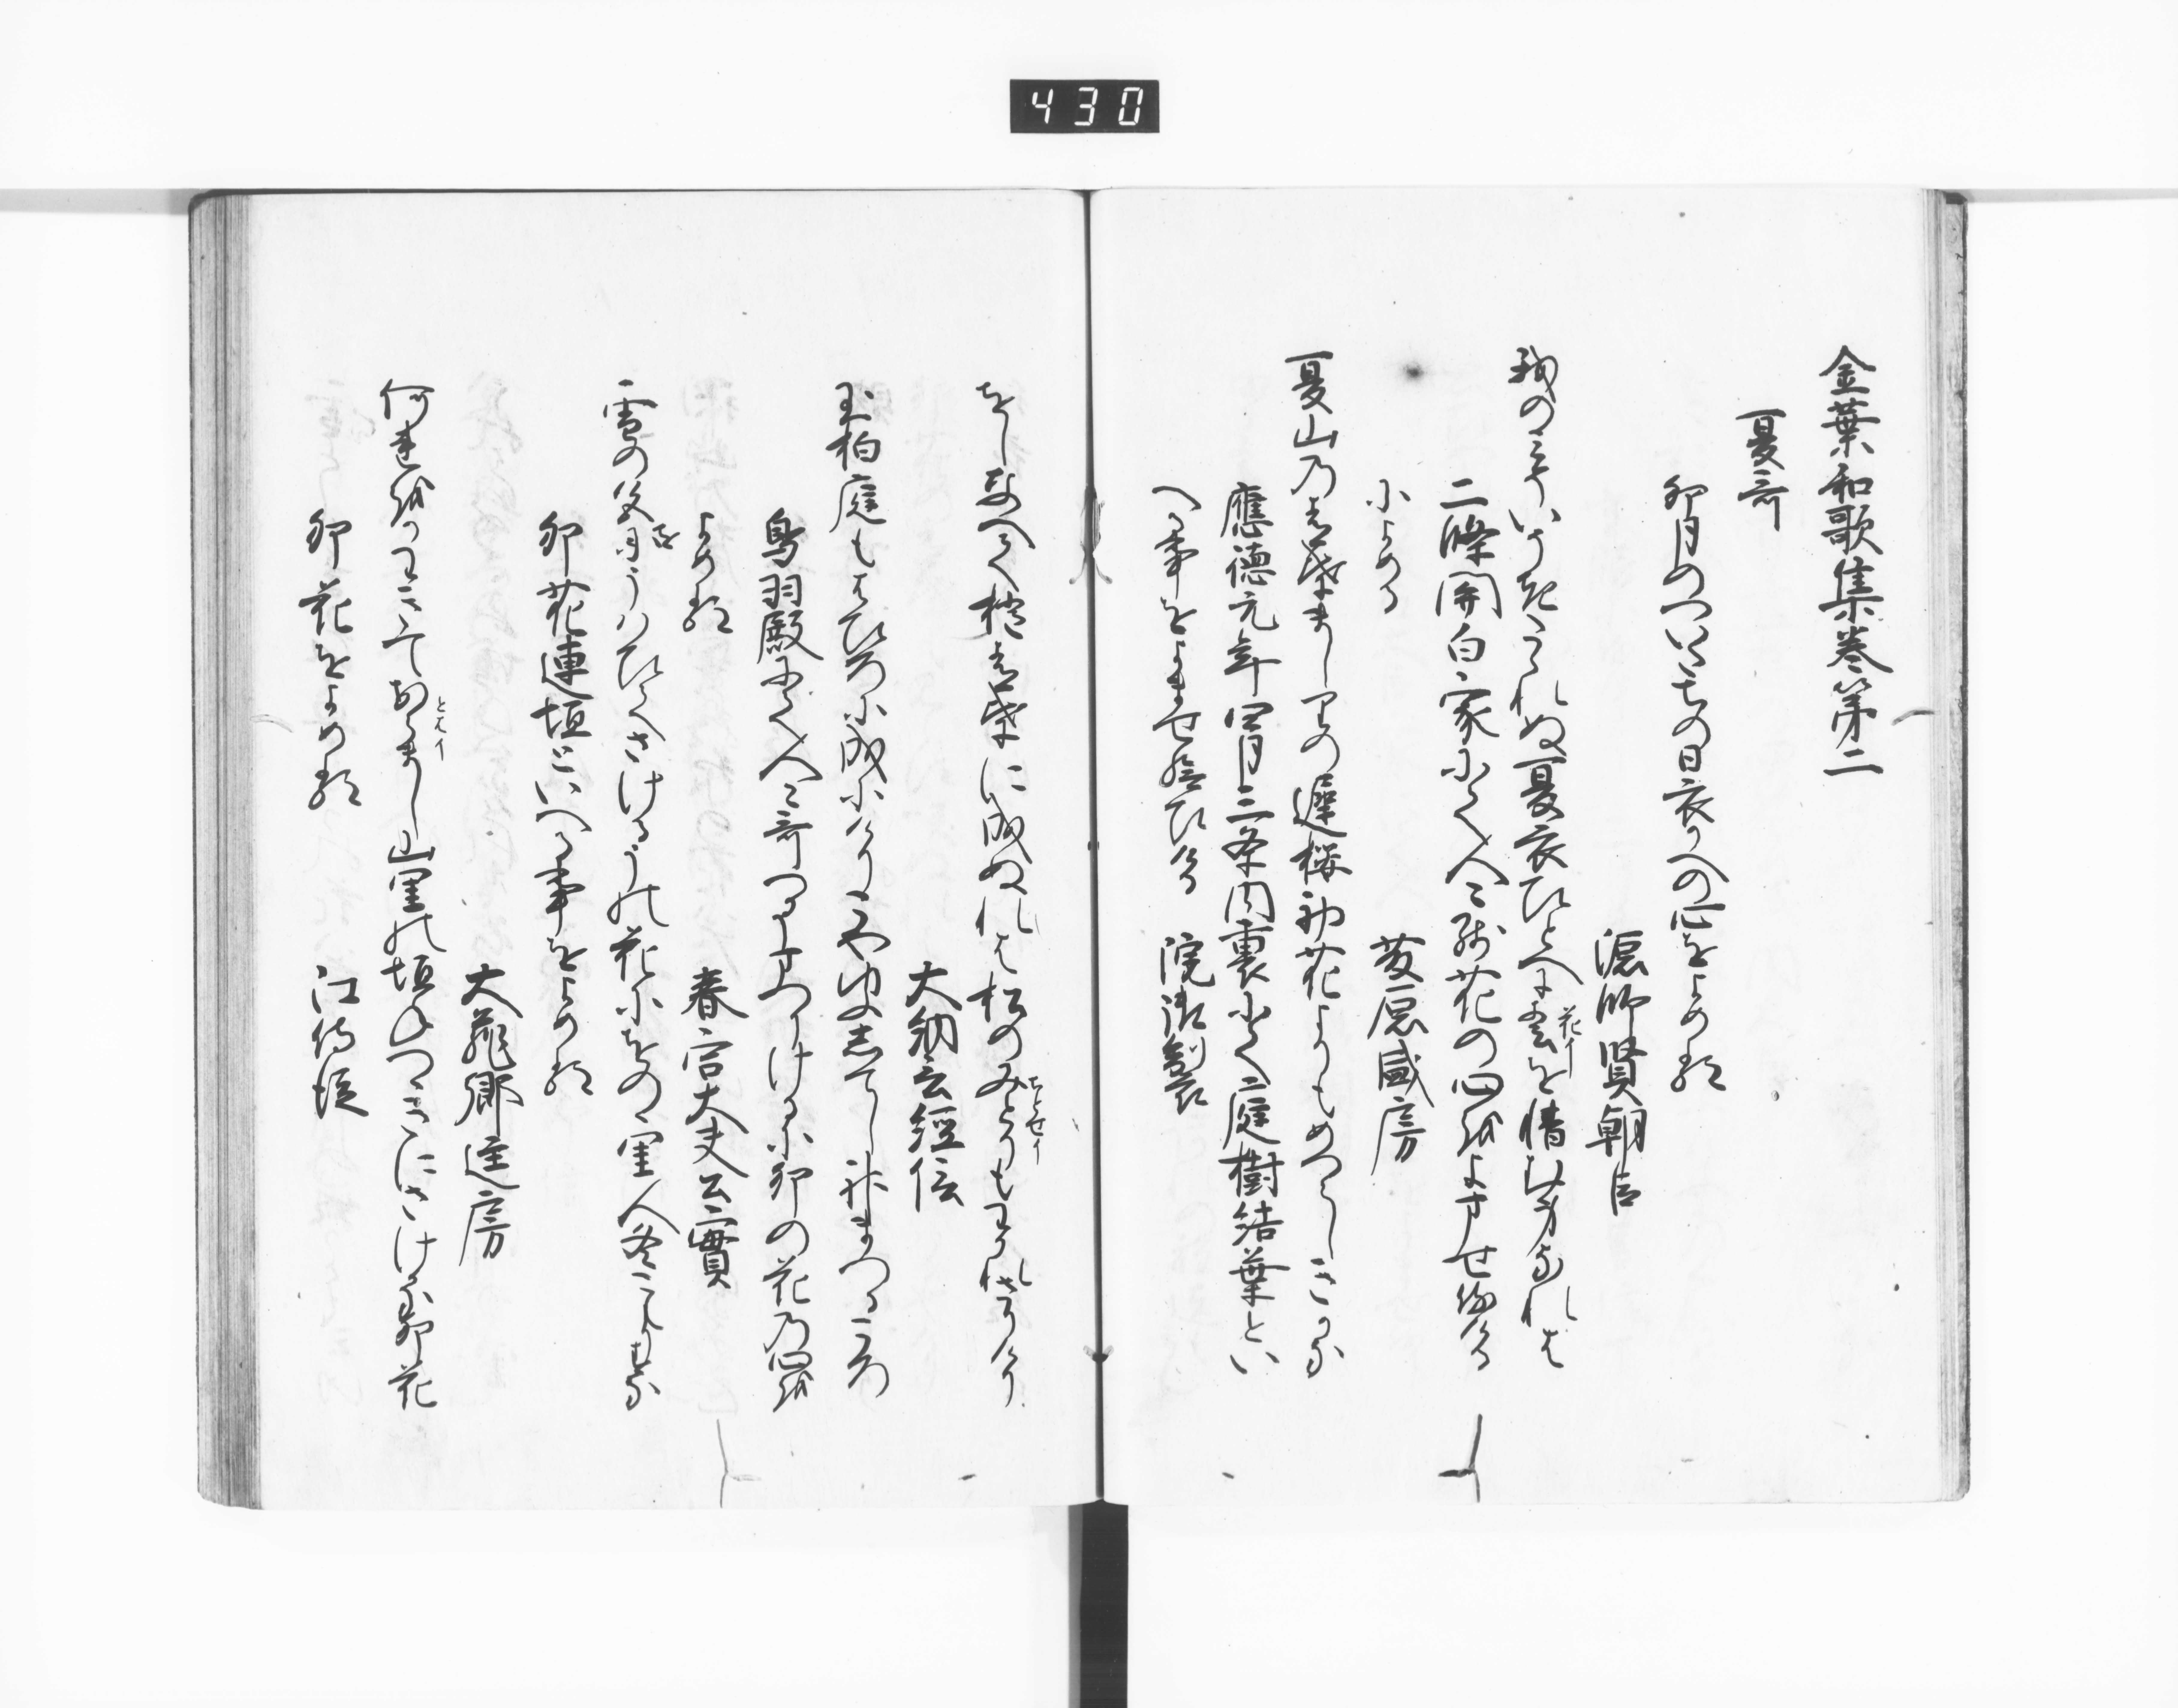 430
金葉和歌集巻第二
夏哥
卯月のついたちの日衣かへの心をよめる
源師賢朝臣
我のみそいそきたゝれぬ夏衣ひとへに春を惜む身なれは
花イ
二條関白家にて人々残花の心をよませ侍ける
によめる
藤原盛房
夏山の青葉ましりの遅桜初花よりもめつらしきかな
應徳元年四月三条内裏にて庭樹結葉とい
へる事をよませ給ひける
院御製
をしなへて梢青葉に成ぬれは松のみとりもわかれさりけり
大納言経信
玉柏庭もはひろに成にけりこやゆふしてし神まつるころ
鳥羽殿にて人々哥つかうまつりけるに卯の花の心を
よめる
春宮大夫公實
雪の色をうはひてさけるうの花にをのゝ里人冬こもりすな
卯花連垣といへる事をよめる
大蔵卿匡房
何れをかわきておらまし山里の垣ねつゝきにさける卯花
とはイ
卯花をよめる
江侍従